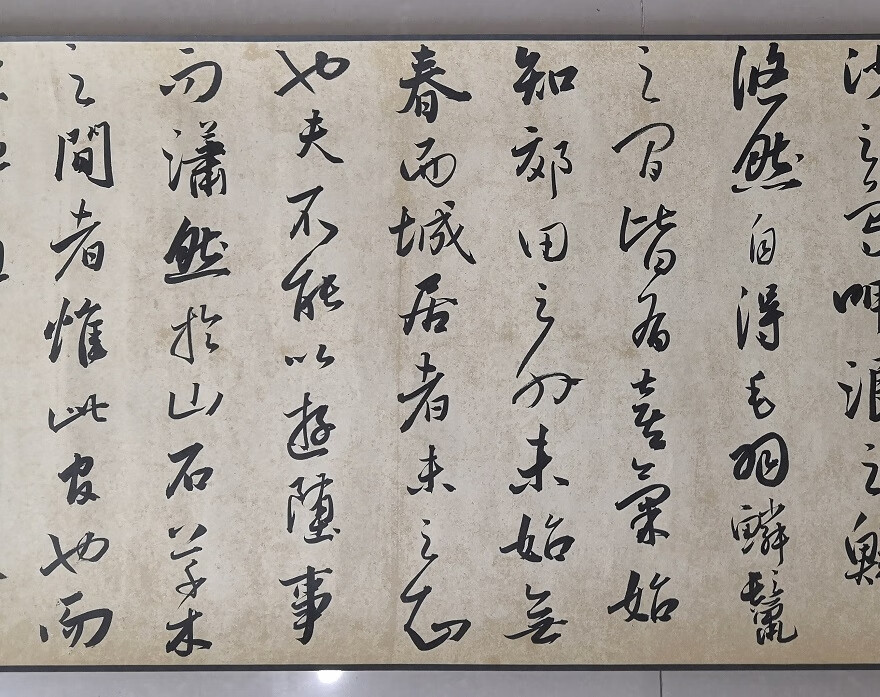 沙之鳥呷浪之
悠然自得毛羽鱗鬣
之間皆有喜氣始
知郊田之外未始無
春而城居者未之知
也夫不能以遊墮事
而瀟然於山石草木
之間者惟此官也而